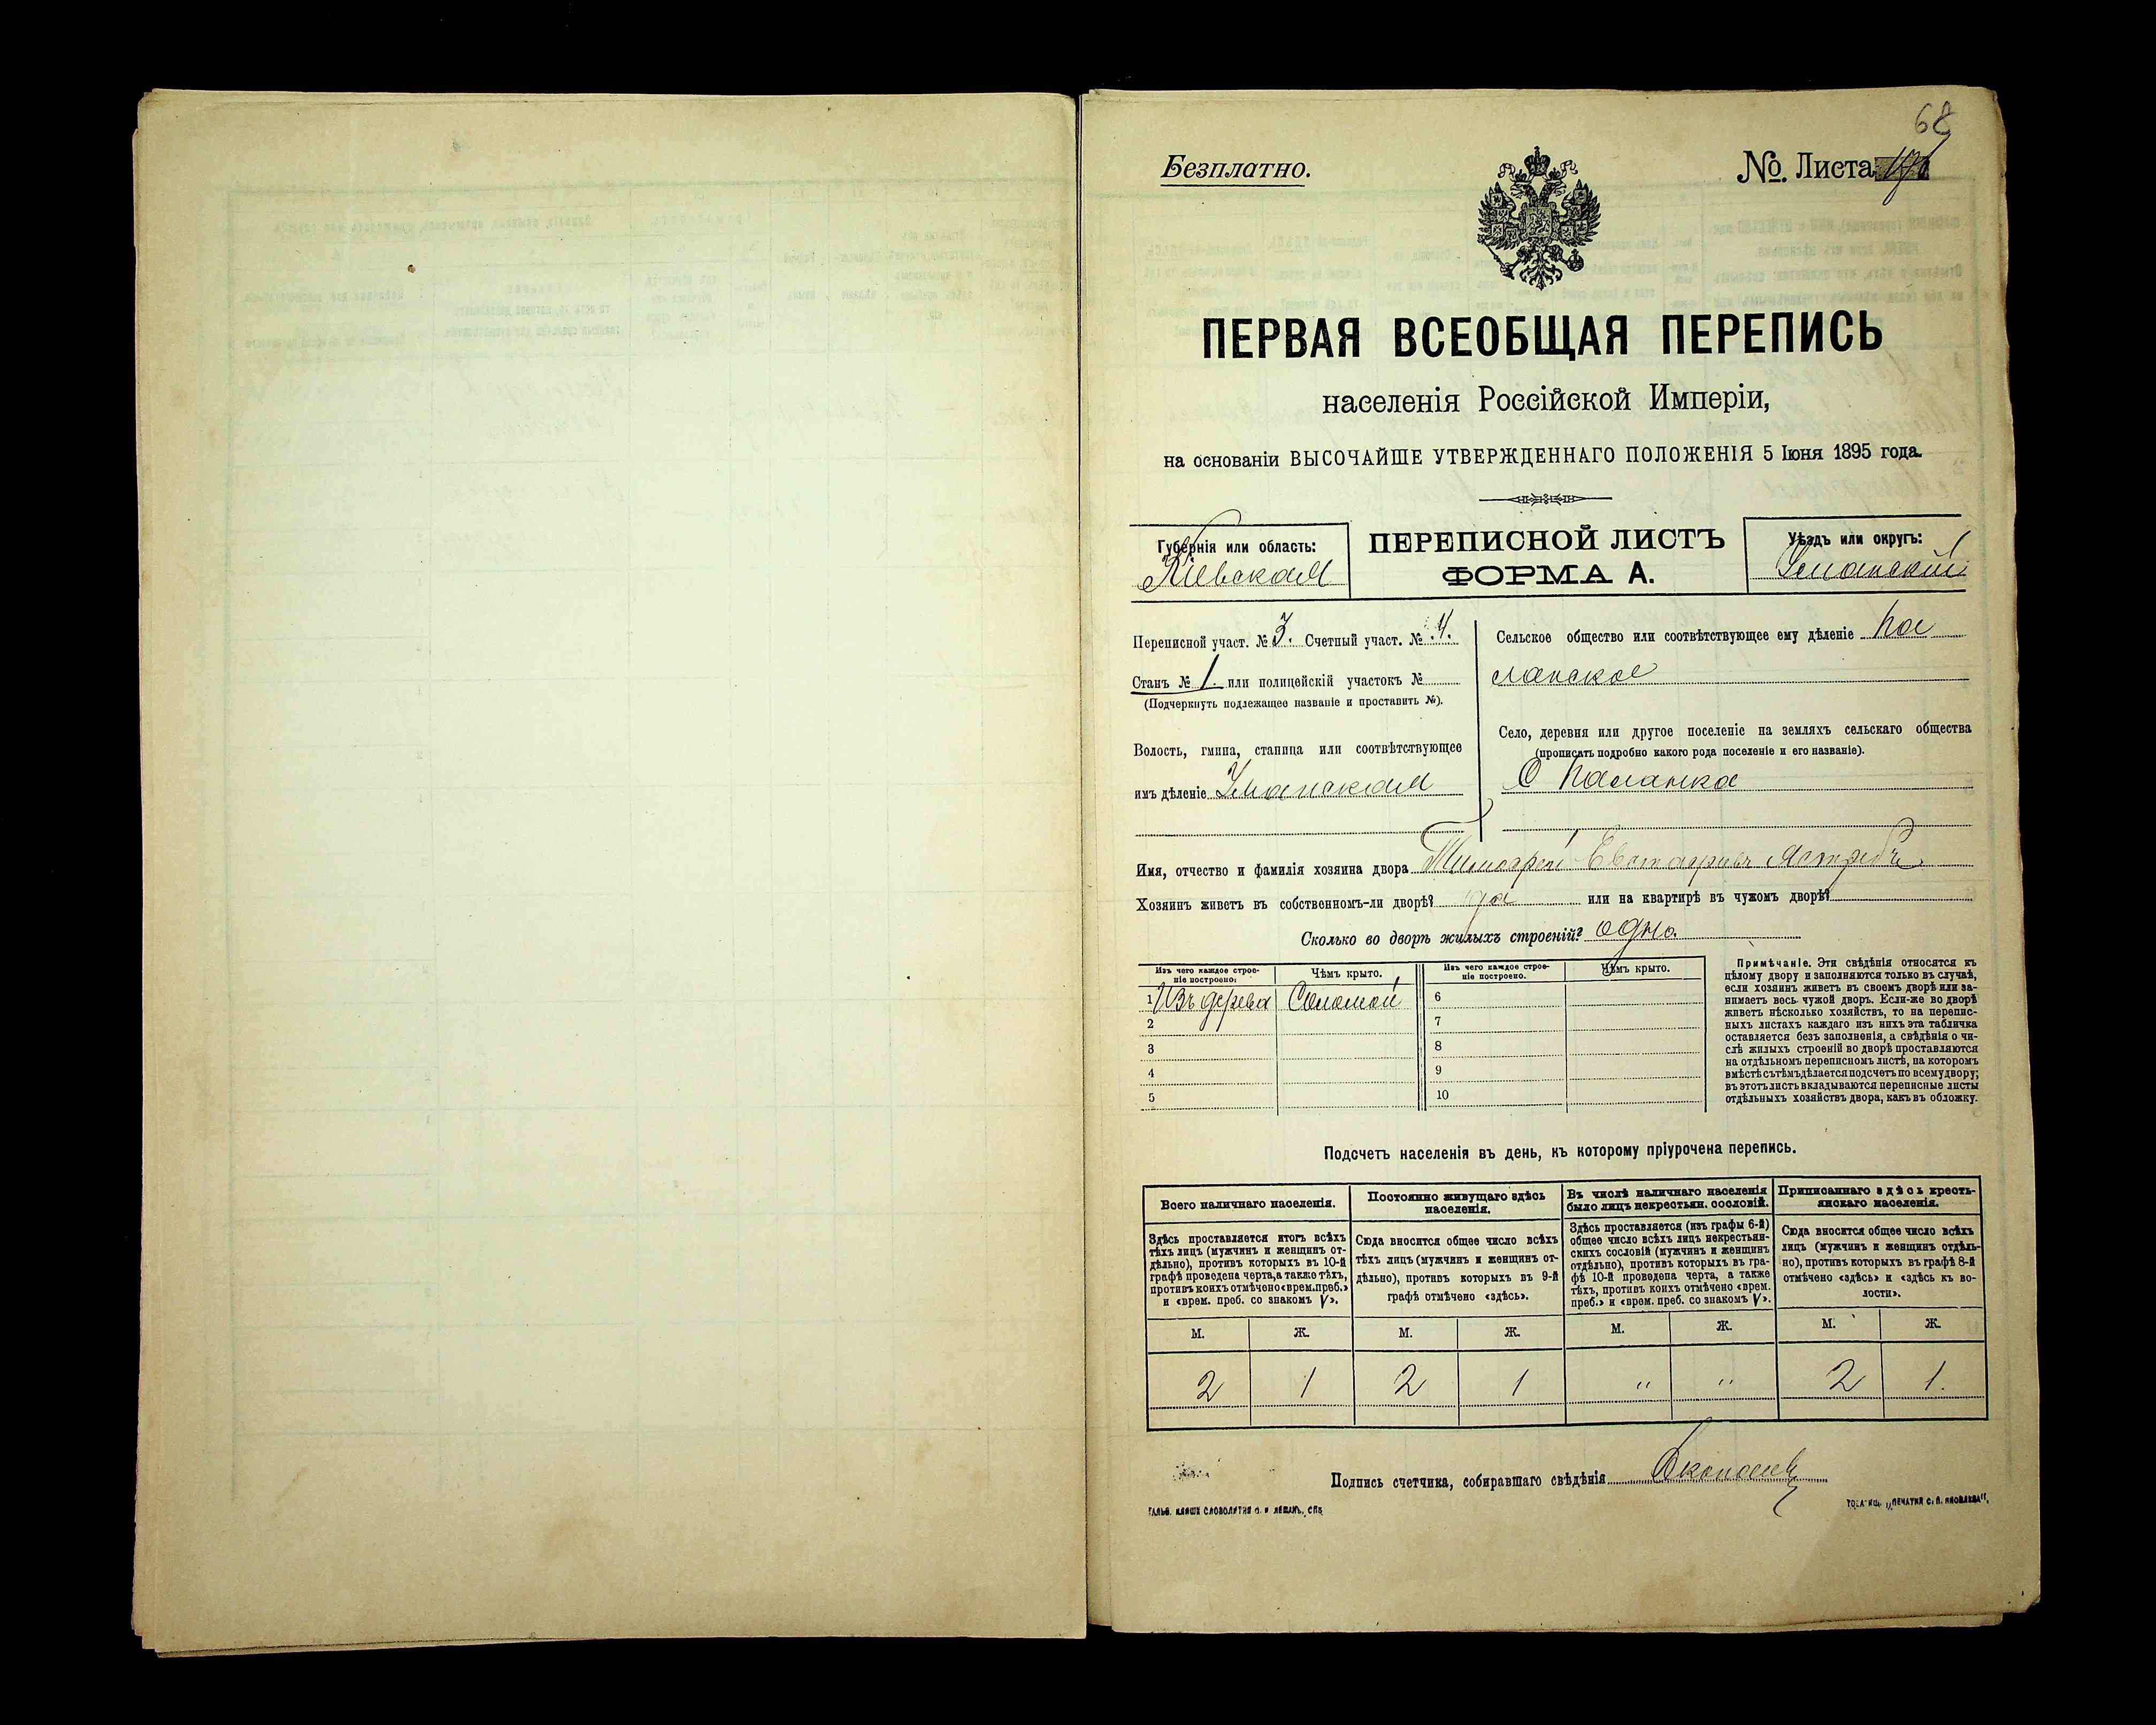 68
Безплатно.
№. Листа
ПЕРВАЯ ВСЕОБЩАЯ ПЕРЕПИСЬ
населенія Россійской Имперіи,
на основаніи ВЫСОЧАЙШЕ УТВЕРЖДЕННАГО ПОЛОЖЕНІЯ 5 Іюня 1895 года.
Губернія или область:
Кіевская
ПЕРЕПИСНОЙ ЛИСТЪ
ФОРМА А.
Уѣздъ или округъ:
Уманскій
Переписной участ. № 3. Счетный участ. № 4.
Станъ № 1. или полицейскій участокъ №
(Подчеркнуть подлежащее названіе и проставить №).
Волость, гмина, станица или соотвѣтствующее
имъ дѣленіе Уманская
Сельское общество или соотвѣтствующее ему дѣленіе Па
ланское
Село, деревня или другое поселеніе на земляхъ сельскаго общества
(прописать подробно какого рода поселеніе и его названіе).
С Паланка
Имя, отчество и фамилія хозяина двора Тимофей Евстафіевъ Ястребъ
Хозяинъ живетъ въ собственномъ-ли дворѣ? да или на квартирѣ въ чужомъ дворѣ?
Сколько во дворѣ жилыхъ строеній? одно.
Изъ чего каждое строе-
ніе построено:
Чѣмъ крыто.
Изъ чего каждое строе-
ніе построено.
Чѣмъ крыто.
1 Изъ дерева Соломой 6
2 7
3 8
4 9
5 10
Примѣчаніе. Эти свѣдѣнія относятся къ
цѣлому двору и заполняются только въ случаѣ,
если хозяинъ живетъ въ своемъ дворѣ или за-
нимаетъ весь чужой дворъ. Если-же во дворѣ
живетъ нѣсколько хозяйствъ, то на перепис-
ныхъ листахъ каждаго изъ нихъ эта табличка
оставляется безъ заполненія, а свѣдѣнія о чи-
слѣ жилыхъ строеній во дворѣ проставляются
на отдѣльномъ переписномъ листѣ, на которомъ
вмѣстѣ съ тѣмъ дѣлается подсчетъ по всему двору;
въ этотъ листъ вкладываются переписные листы
отдѣльныхъ хозяйствъ двора, какъ въ обложку.
Подсчетъ населенія въ день, къ которому пріурочена перепись.
Всего наличнаго населенія.
Здѣсь проставляется итогъ всѣхъ
тѣхъ лицъ (мужчинъ и женщинъ от-
дѣльно), противъ которыхъ въ 10-й
графѣ проведена черта, а также тѣхъ,
противъ коихъ отмѣчено «врем. преб.»
и «врем. преб. со знакомъ V».
Постоянно живущаго здѣсь
населенія.
Сюда вносится общее число всѣхъ
тѣхъ лицъ (мужчинъ и женщинъ от-
дѣльно), противъ которыхъ въ 9-й
графѣ отмѣчено «здѣсь».
Въ числѣ наличнаго населенія
было лицъ некрестьян. сословій.
Здѣсь проставляется (изъ графы 6-й)
общее число всѣхъ лицъ некрестьян-
скихъ сословій (мужчинъ и женщинъ
отдѣльно), противъ которыхъ въ гра-
фѣ 10-й проведена черта, а также
тѣхъ, противъ коихъ отмѣчено «врем.
преб.» и «врем. преб. со знакомъ V».
Приписаннаго здѣсь кресть-
янскаго населенія.
Сюда вносится общее число всѣхъ
лицъ (мужчинъ и женщинъ отдѣль-
но), противъ которыхъ въ графѣ 8-й
отмѣчено «здѣсь» и «здѣсь къ во-
лости».
М. Ж. М. Ж. М. Ж. М. Ж.
2 1 2 1 " " 2 1.
Подпись счетчика, собиравшаго свѣдѣнія